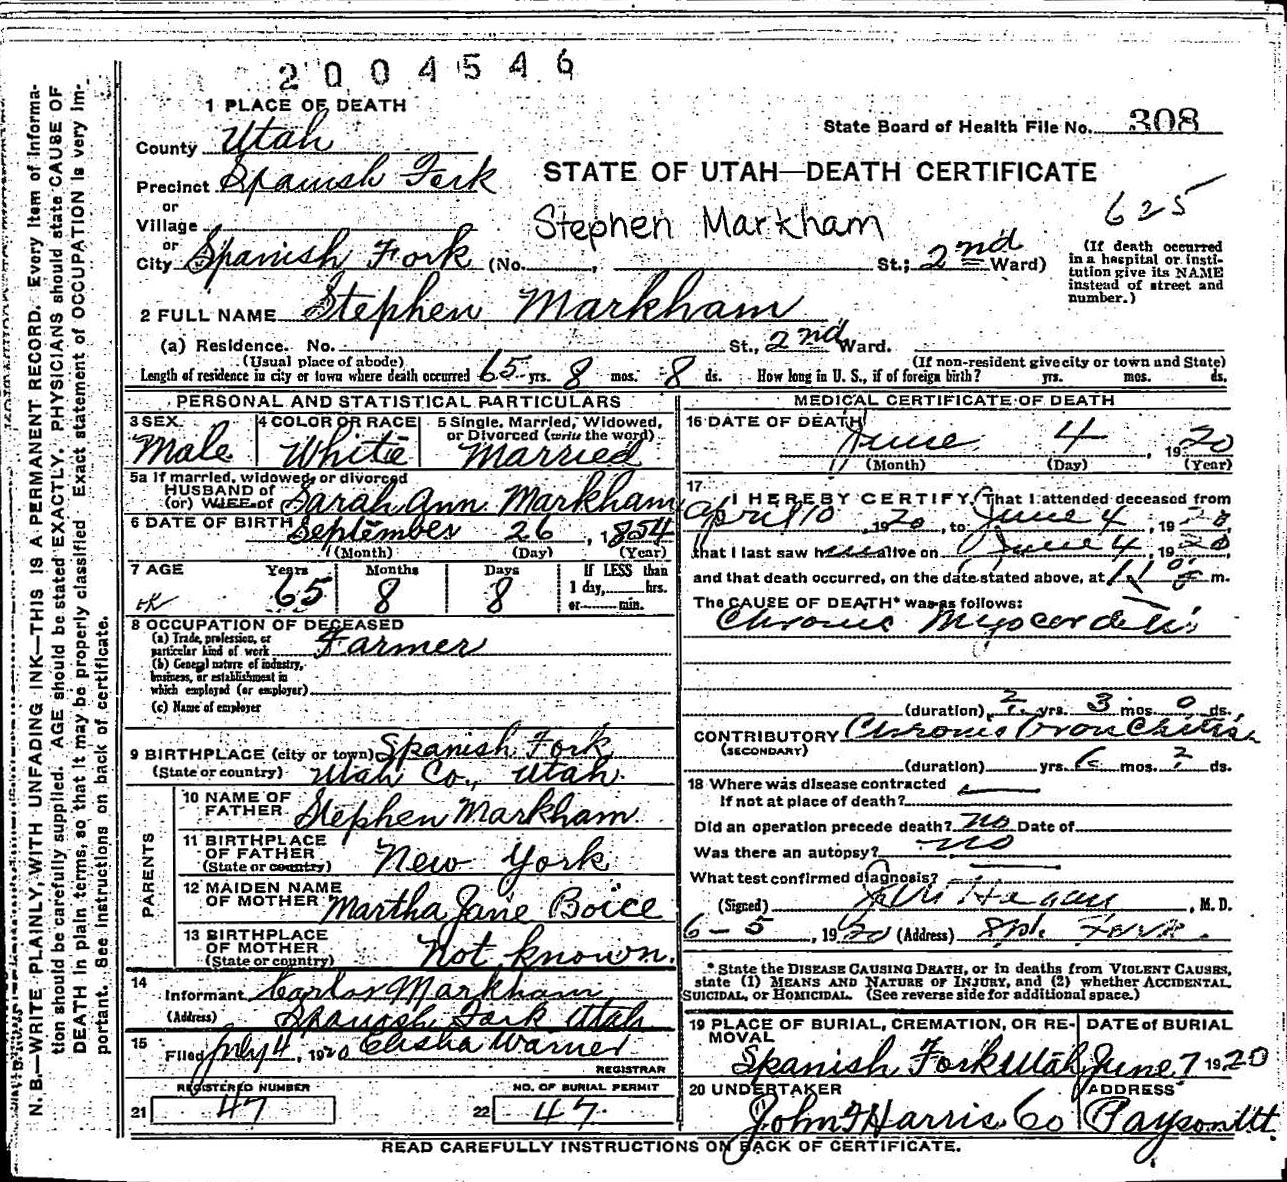 2004546
1 PLACE OF DEATH
State Board of Health File No. 308
County Utah
STATE OF UTAH—DEATH CERTIFICATE
Precinct Spanish Fork
or
Village
Stephen Markham
625
or
City Spanish Fork (No. , St.; 2nd Ward)
(If death occurred in a hospital or institution give its NAME instead of street and number.)
2 FULL NAME Stephen Markham
(a) Residence. No. St., 2nd Ward.
(Usual place of abode) (If non-resident give city or town and State)
Length of residence in city or town where death occurred 65 yrs. 8 mos. 8 ds. How long in U. S., if of foreign birth? yrs. mos. ds.
PERSONAL AND STATISTICAL PARTICULARS
3 SEX 4 COLOR OR RACE 5 Single, Married, Widowed, or Divorced (write the word)
Male White Married
5a If married, widowed, or divorced
HUSBAND of
(or) WIFE of Sarah Ann Markham
6 DATE OF BIRTH September 26, 1854
(Month) (Day) (Year)
7 AGE Years Months Days If LESS than
65 8 8 1 day, hrs.
or min.
8 OCCUPATION OF DECEASED
(a) Trade, profession, or particular kind of work Farmer
(b) General nature of industry, business, or establishment in which employed (or employer)
(c) Name of employer
9 BIRTHPLACE (city or town) Spanish Fork
(State or country) Utah Co., Utah.
PARENTS
10 NAME OF FATHER Stephen Markham
11 BIRTHPLACE OF FATHER New York
(State or country)
12 MAIDEN NAME OF MOTHER Martha Jane Boice
13 BIRTHPLACE OF MOTHER Not known.
(State or country)
14
Informant Carlos Markham
(Address) Spanish Fork Utah
15 Filed July 4, 1920 Elisha Warner
REGISTRAR
REGISTERED NUMBER NO. OF BURIAL PERMIT
21 47 22 47
MEDICAL CERTIFICATE OF DEATH
16 DATE OF DEATH
June 4, 1920
(Month) (Day) (Year)
17
I HEREBY CERTIFY, That I attended deceased from
April 10, 1920, to June 4, 1920
that I last saw him alive on June 4, 1920
and that death occurred, on the date stated above, at m.
The CAUSE OF DEATH* was as follows:
Chronic Myocarditis
(duration) 2 yrs. 3 mos. 0 ds.
CONTRIBUTORY Chronic Bronchitis
(SECONDARY)
(duration) yrs. 6 mos. ? ds.
18 Where was disease contracted
If not at place of death?
Did an operation precede death? no Date of
Was there an autopsy? no
What test confirmed diagnosis?
(Signed) Hagan, M. D.
6-5, 1920 (Address) Sph. Fork.
*State the DISEASE CAUSING DEATH, or in deaths from VIOLENT CAUSES,
state (1) MEANS AND NATURE OF INJURY, and (2) whether ACCIDENTAL,
SUICIDAL, or HOMICIDAL. (See reverse side for additional space.)
19 PLACE OF BURIAL, CREMATION, OR REMOVAL DATE of BURIAL
Spanish Fork Utah June 7 1920
20 UNDERTAKER ADDRESS
John F Harris Co Payson Ut.
READ CAREFULLY INSTRUCTIONS ON BACK OF CERTIFICATE.
N. B.—WRITE PLAINLY, WITH UNFADING INK—THIS IS A PERMANENT RECORD. Every item of informa-
tion should be carefully supplied. AGE should be stated EXACTLY. PHYSICIANS should state CAUSE OF
DEATH in plain terms, so that it may be properly classified. Exact statement of OCCUPATION is very im-
portant. See instructions on back of certificate.